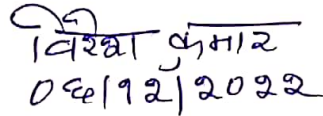 विरेश कुमार
०६/१२/२०२२